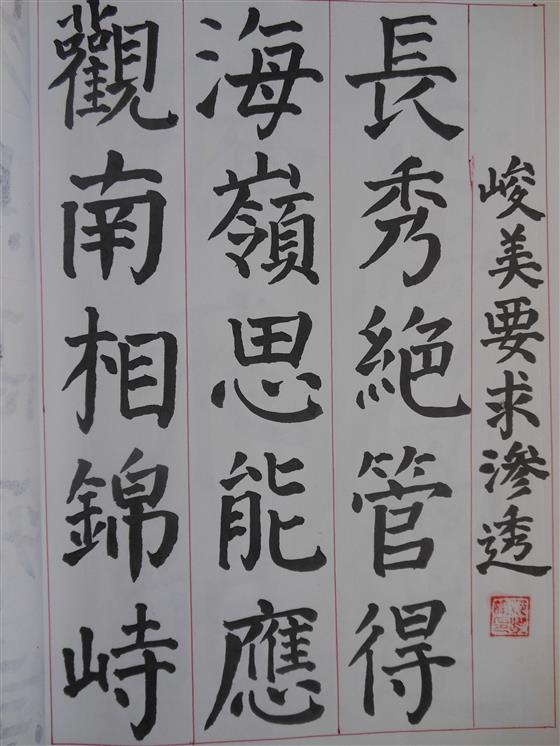 峻美要求滲透
長秀絕管得
海嶺思能應
觀南相錦峙